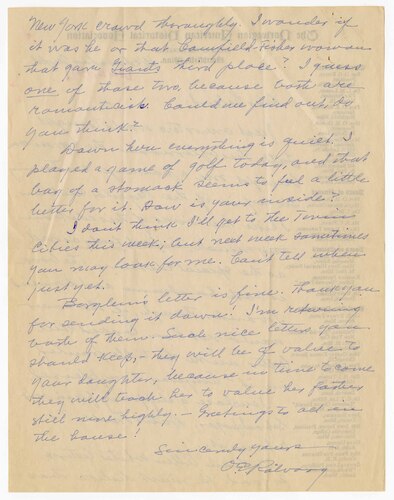 New York crowd throughly. I wonder if
it was he or that Canfield Fisher woman
that gave Giants third place? I guess
one of those two, because both are
romanticists. Could we find out, do
you think?
Down here everything is quiet. I
played a game of golf today, and that
bag of a stomack seems to feel a little
better for it. How is your inside?
I don't think I'll get to the Twin
Cities this week; but next week sometimes
you may look for me. Can't tell when
just yet.
Borglum's letter is fine. Thank you
for sending it down! I'm returning
both of them. Such nice letters you
should keep, – they will be of value to
your daughter, because in time to come
they will teach her to value her father
still more highly. – Greetings to all in
the house!
Sincerely yours
O E Rölvaag